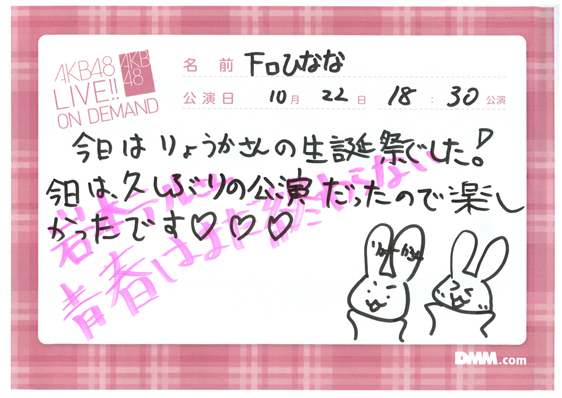 AKB48
LIVE!!
ON DEMAND
AKB
48
名前 下口ひなな
公演日 10月 22日 18:30公演
今日はりょうかさんの生誕祭でした!
今日は、久しぶりの公演だったので楽し
かったです♡♡♡
青春はまだ終わらない
DMM.com